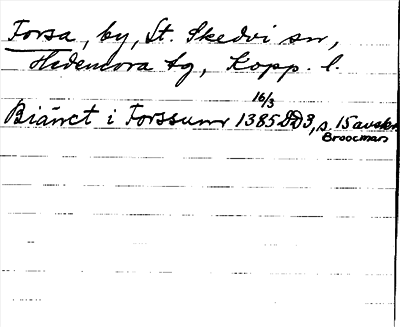 Forsa, by, St. Skedvi sn,
Hedemora tg, Kopp. l.
16/3
Biärct i Forssum 1385 DD3, s. 15 avskr.
Broocman